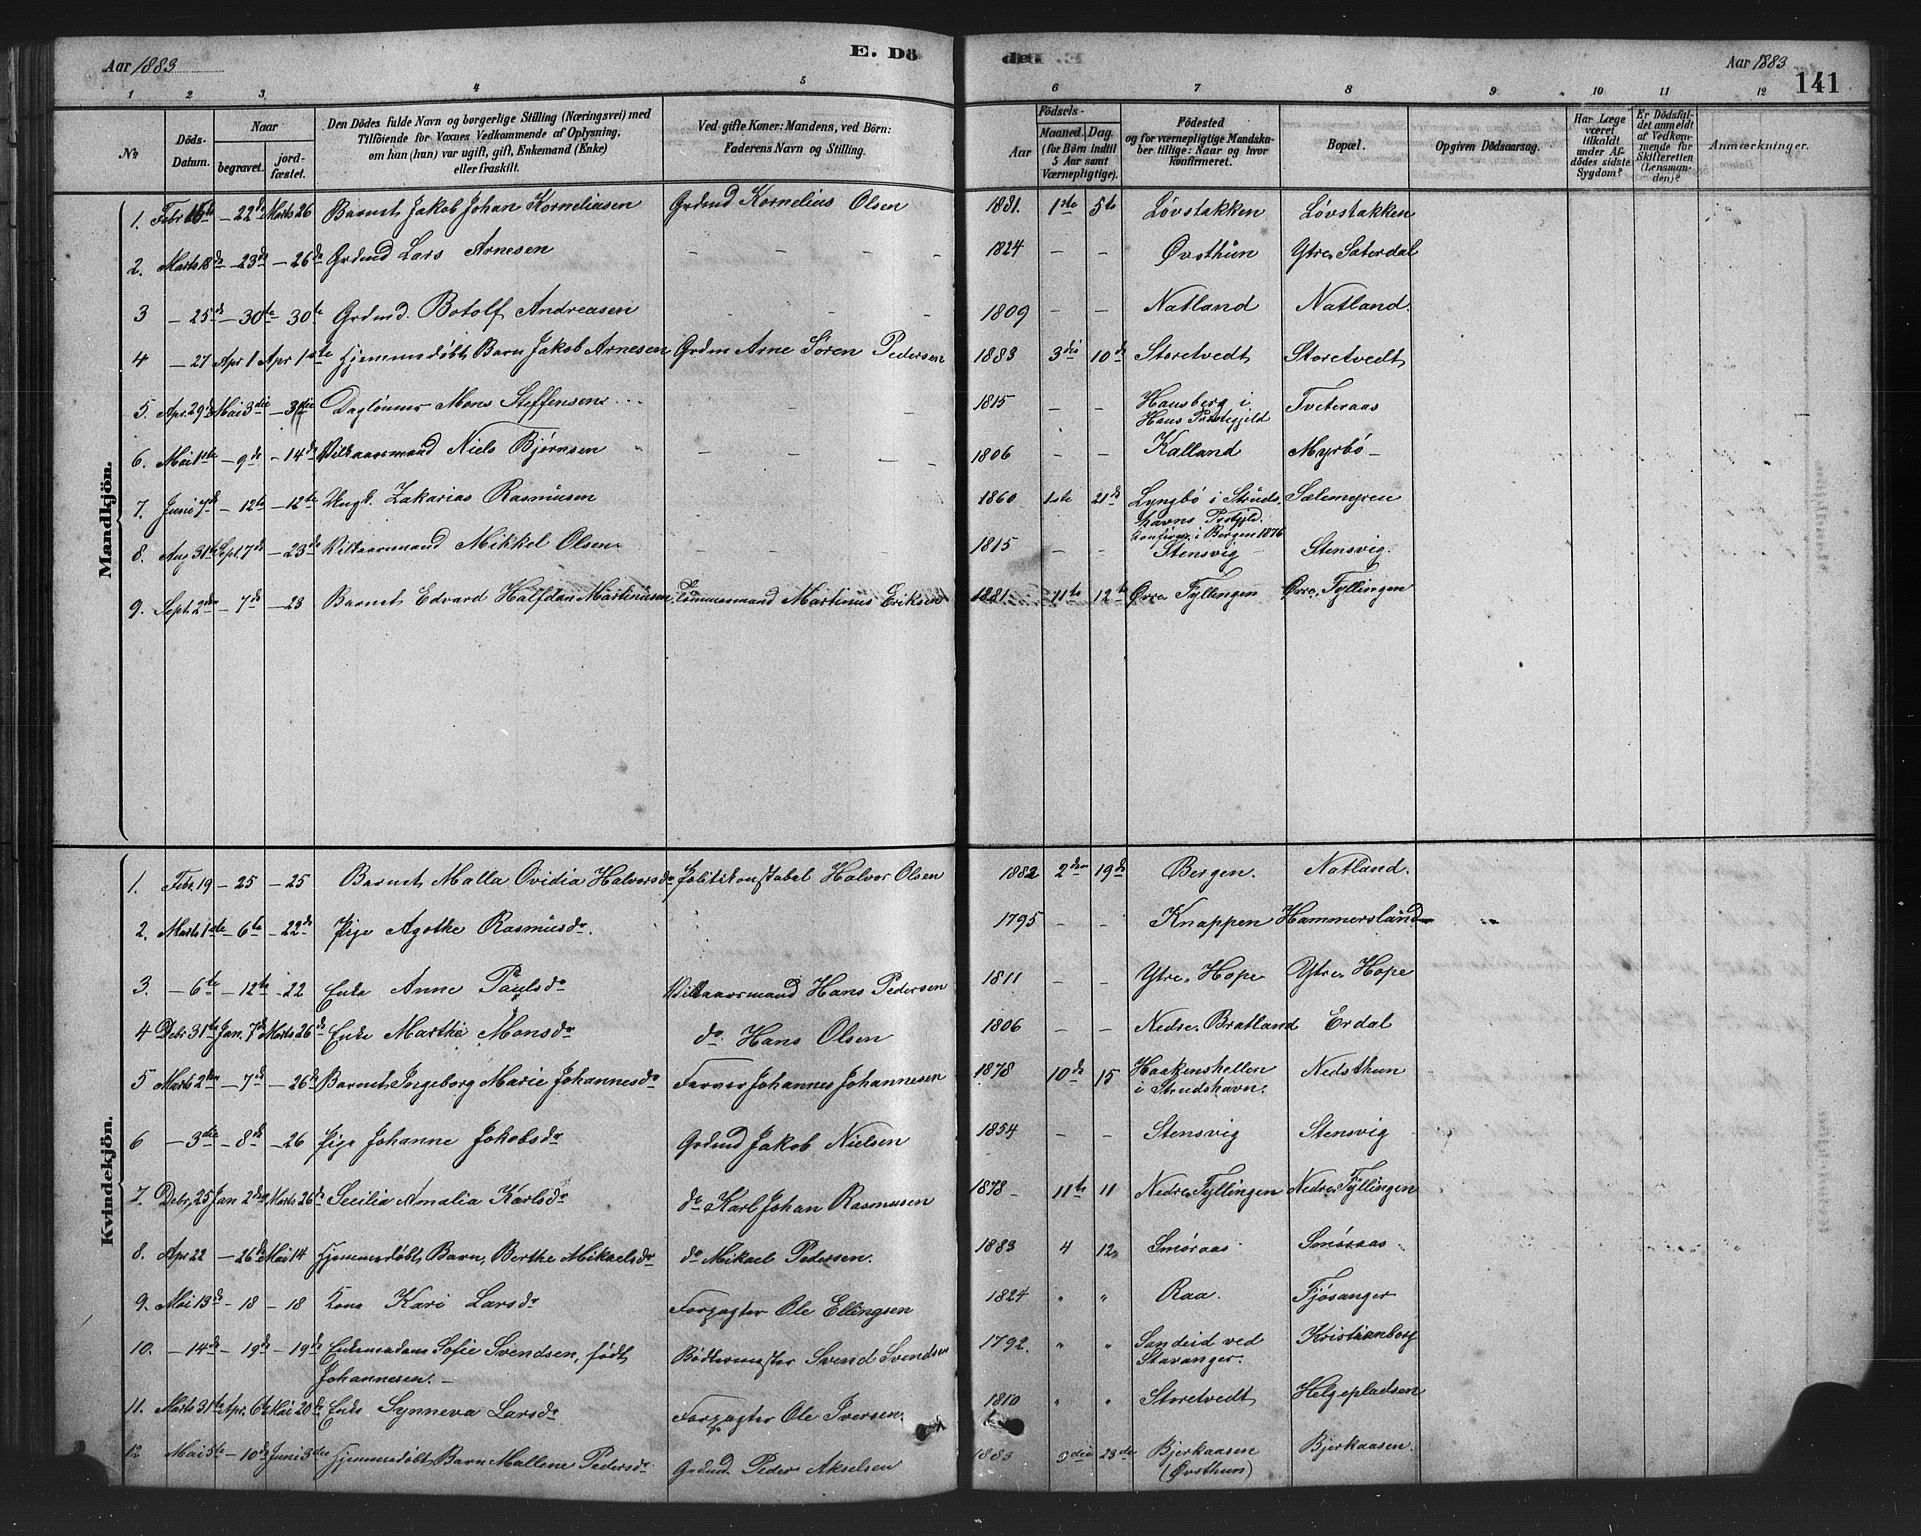 Aar 1883
E. Dö
den
Aar 1883
141
1 2 3. 4 5 6 7 8 9 10 11 12
No
Döds-Datum.
Naar
begravet.
jord-fæstet.
Den Dödes fulde Navn og borgerlige Stilling (Næringsvei) med
Tilföiende for Voxnes Vedkommende af Oplysning,
om han (hun) var ugift, gift, Enkemand (Enke)
eller fraskilt.
Ved gifte Koner: Mandens, ved Börn:
Faderens Navn og Stilling.
Födsels-
Aar
Maaned. Dag.
(for Börn indtil
5 Aar samt
Værnepligtige).
Födested
og for værnepligtige Mandska-
ber tillige: Naar og hvor
konfirmeret.
Bopæl.
Opgiven Dödsaarsag.
Har Læge
været
tilkaldt
under Af-
dödes sidste
Sygdom?
Er Dödsfal-
det anmeldt
af Vedkom-
mende for
Skifteretten
(Lensman-
den)?
Anmærkninger.
Mandkjön.
1. Febr 15de – 22de Marts 26 Barnet Jakob Johan Korneliusen Grdmd Kornelius Olsen 1881. 1ste 5te Løvstakken Løvstakken
2. Marts 18de – 23de – 26de Grdmd Lars Arnesen – – – – 1824 – – Øvsthun Ytre Sæterdal
3 – 25de – 30te 30te Grdmd. Botolf Andreasen – – – 1809 – – Natland Natland.
4 – 27 Apr 1 Apr 1ste Hjemmedøbt Barn Jakob Arnesen Grdm Arne Søren Pedersen 1883 3die 10de Storetvedt Storetvedt
5. Apr. 29de Mai 3die – 3die Daglønner Mons Steffensen – – 1815 – – Hausberg i
Haus Præstegjeld Tveteraas
6. Mai 1ste – 9de – 14de Vilkaarsmand Niels Bjørnsen – – – – 1806 – – Kalland Myrbø –
7. Juni 7de – 12te – 12te Ungk. Zakarias Rasmusen 1860 1ste 21de Lyngbø i Struds-
havns Prstgjld.
Konfirm. i Bergen 1876 Sælemyren
8. Aug 31te Sept. 7de – 23de Vilkaarsmand Mikkel Olsen – – 1815 – – Stensvig Stensvig.
9. Sept. 2den – 7de – 23 Barnet Edvard Halfdan Martinusen Tømmermand Martinus Eriksen 1881 11te 12te Øvre Fyllingen Øvre Fyllingen
Kvindekjön.
1. Febr. 19 – 25 – 25 Barnet Malla Ovidia Halvorsdr Politikonstabel Halvor Olsen 1882 2den 19de Bergen. Natland.
2. Marts 1ste – 6te – 22de Pige Agothe Rasmusdr. 1795 – – Knappen Hammersland
3. – 6te – 12te – 22 Enke Anne Paulsdr Vilkaarsmand Hans Pedersen 1811 – – Ytre Hope Ytre Hope
4 Debr. 31te Jan. 7de Marts 26de Enke Marthe Monsdr do Hans Olsen 1806 – – Nedre Bratland Erdal
5 Marts 2den – 7de – 26de Barnet Ingeborg Marie Johannesdr Farver Johannes Johannesen 1878 10de 15 Haakenshellen
i Strudshavn. Nedsthun
6 – 3die – 8de – 26 Pige Johanne Jakobsdr Grdmd Jakob Nielsen 1854 – – Stensvig Stensvig
7. Debr. 25 Jan 2den Marts 26de Secilia Amalia Karlsdr do Karl Johan Rasmusen 1878 – 11te 11 Nedre Fyllingen Nedre Fyllingen
8. Apr 22 – 26de Mai 14 Hjemmedøbt Barn, Berthe Mikaelsdr do Mikael Pedersen. 1883 4 12 Smøraas Smøraas
9. Mai 13de – 18 – 18 Kone Kari Larsdr Forpagter Ole Ellingsen 1824 " " Raa. Fjøsanger
10. – 14de – 19de – 19de Enkemadam Sofie Svendsen, født
Johannesen. – Bødkermester Svend Svendsen 1792. " " Sandeid ved
Stavanger. Kristianborg
11. Marts 31te Apr. 6te Mai 20de Enke Synneva Larsdr Forpagter Ole Iversen. 1810 " " Storetvedt Helgepladsen
12 Mai 5te – 10de Juni 3die Hjemmedøbt Barn Mallene Pedersdr Grdmd. Peder Akselsen 1883 3die 23de Bjerkaasen
(Øvsthun) Bjerkaasen.